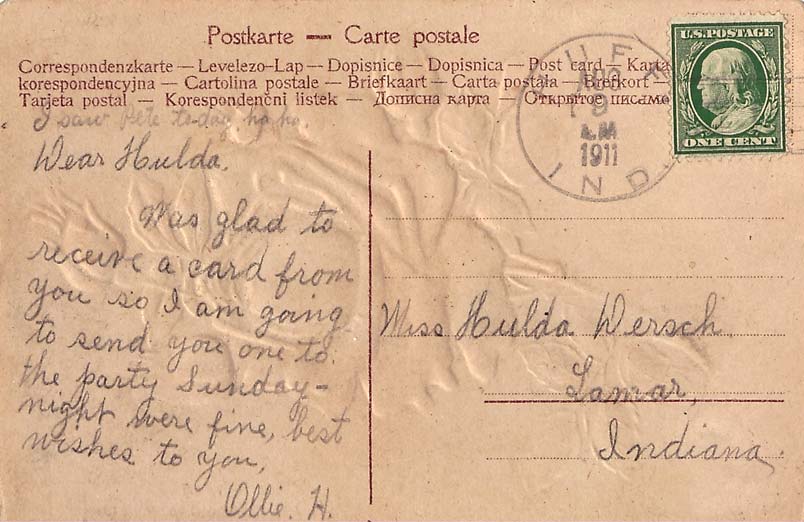 Postkarte — Carte postale
Correspondenzkarte — Levelezo-Lap — Dopisnice — Dopisnica — Post card — Karta
korespondencyjna — Cartolina postale — Briefkaart — Carta postala — Brefkort —
Tarjeta postal — Korespondenční listek — Дописна карта — Открытое письмо
U.S. POSTAGE
ONE CENT
9
A.M
1911
IND.
I saw Pete to-day ha ha
Dear Hulda.
Was glad to
receive a card from
you so I am going
to send you one to.
the party Sunday-
night were fine, best
wishes to you,
Ollie. H.
Miss Hulda Dersch,
Lamar,
Indiana.